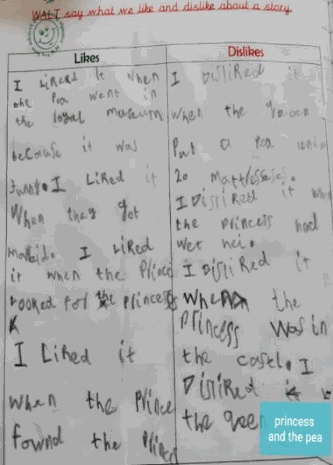 WALT say what we like and dislike about a story.
Likes
I Liked it when
the Pea went in
the royal museum
because it was
funny. I Liked it
When they got
I Liked
it when the Princ
looked for the Princess
I Liked it
when the Prince
fownd the Princes
Dislikes
I Disliked it
when the Queen
Put a Pea
20 mattresses.
I Disliked it when
the princess had
wet hei.
I Disliked it
when the
Princess was in
the castl. I
Disliked it
the Qeen
princess
and the pea